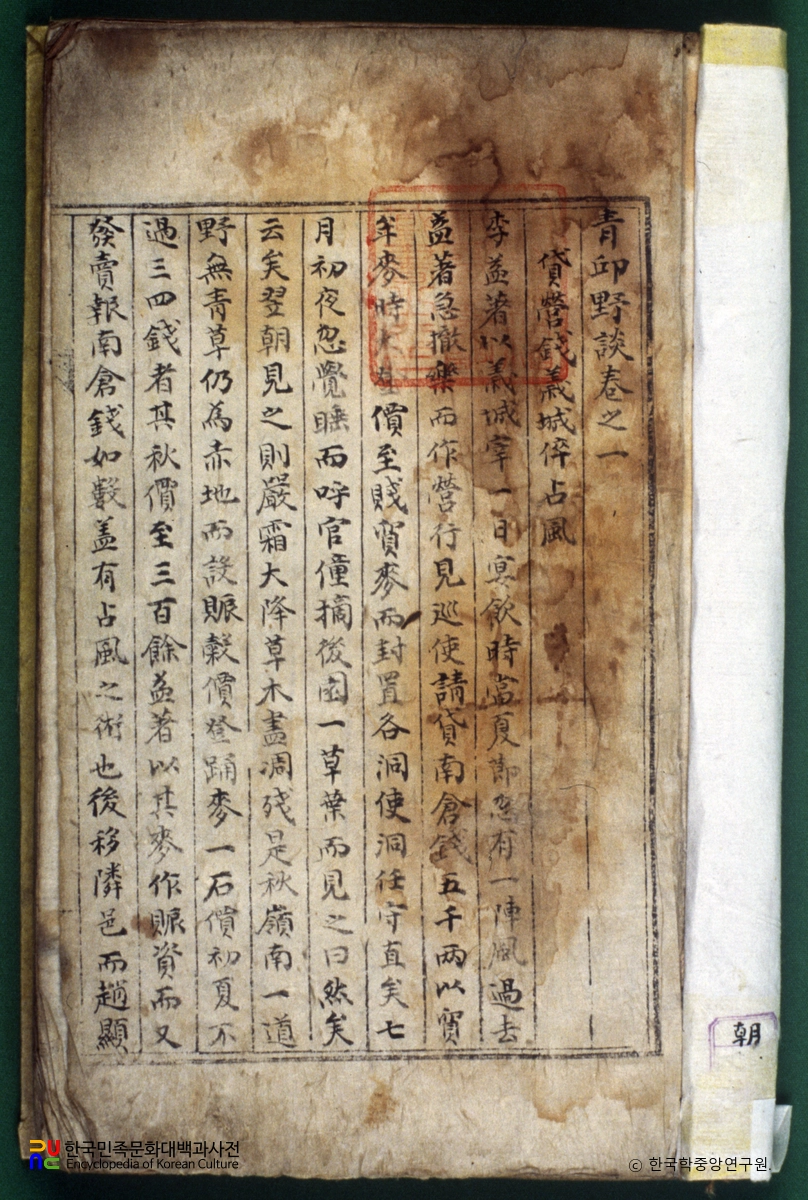 青邱野談卷之一
貸營錢義城倅占風
李益著以義城宰一日宴飮時當夏節忽有一陣風過去
益著急撤樂而作營行見巡使請貸南倉錢五千兩以貿
牟麥時 價至賤貿麥而封置各洞使洞任守直矣七
月初夜忽覺睡而呼官僮摘後園一草葉而見之曰然矣
云矣翌朝見之則嚴霜大降草木盡凋殘是秋嶺南一道
野無靑草仍爲赤地而設賑糓價登踊麥一石價初夏不
過三四錢者其秋價至三百餘益著以其麥作賑資而又
發賣報南倉錢如數盖有占風之術也後移隣邑而趙顯
朝
한국민족문화대백과사전
Encyclopedia of Korean Culture
© 한국학중앙연구원.